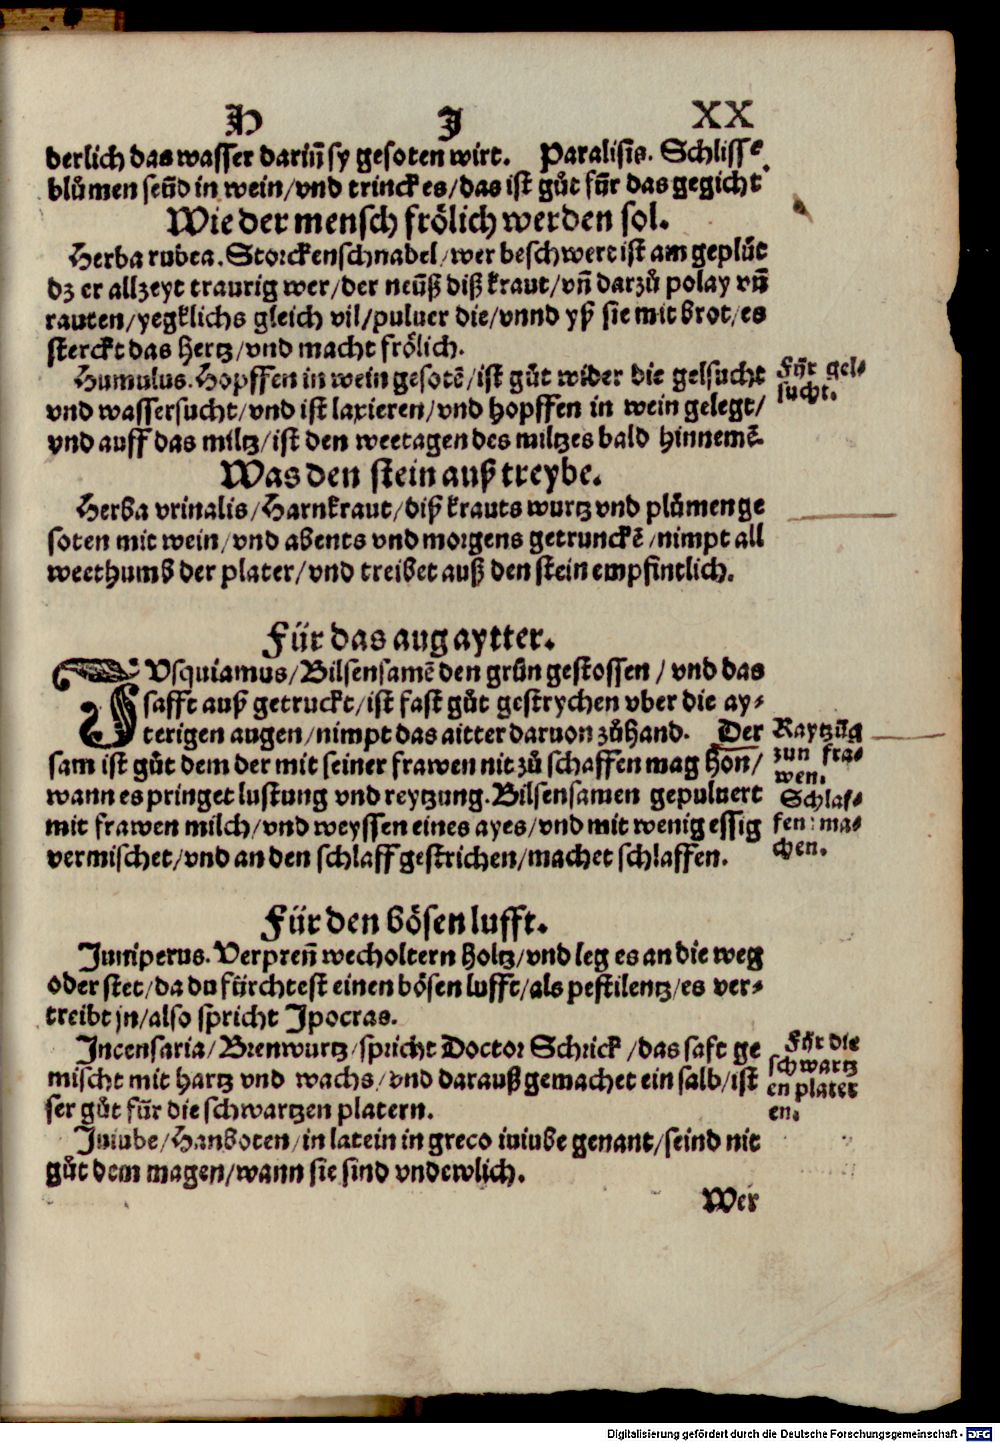 H J XX
derlich das wasser dariñ sy gesoten wirt. Paralisis. Schlissel
blůmen seüd in wein/vnd trinck es/das ist gůt für das gegicht
Wie der mensch frölich werden sol.
Herba rubea. Storckenschnabel/wer beschwert ist am geplüt
dz er allzeyt traurig wer/der neüß diß kraut/vñ darzů polay vñ
rauten/yegklichs gleich vil/puluer die/vnnd yß sie mit brot/es
sterckt das hertz/vnd macht frölich.
Humulus. Hopffen in wein gesotē/ist gůt wider die gelsucht
Für gel-
sucht.
vnd wassersucht/vnd ist laxieren/vnd hopffen in wein gelegt/
vnd auff das miltz/ist den weetagen des miltzes bald hinnemē.
Was den stein auß treybe.
Herba vrinalis/Harnkraut/diß krauts wurtz vnd plůmen ge
soten mit wein/vnd abents vnd morgens getrunckē/nimpt all
weethumb der plater/vnd treibet auß den stein empfintlich.
Für das aug aytter.
JVsquiamus/Bilsensamē den grün gestossen/vnd das
safft auß getruckt/ist fast gůt gestrychen vber die ay-
terigen augen/nimpt das aitter daruon zůhand. Der
sam ist gůt dem der mit seiner frawen nit zů schaffen mag hon/
wann es pringet lustung vnd reytzung. Bilsensamen gepuluert
mit frawen milch/vnd weyssen eines ayes/vnd mit wenig essig
vermischet/vnd an den schlaff gestrichen/machet schlaffen.
Raytzüg
zun fra-
wen.
Schlaf-
fen ma-
chen.
Für den bösen lufft.
Juniperus. Verpreñ wecholtern holtz/vnd leg es an die weg
oder stet/da du fürchtest einen bösen lufft/als pestilentz/es ver-
treibt jn/also spricht Jpocras.
Jncensaria/Brenwurtz/spricht Doctor Schrick/das saft ge
mischt mit hartz vnd wachs/vnd darauß gemachet ein salb/ist
ser gůt für die schwartzen platern.
Für die
schwartz
en plater
en.
Juiube/Hanboten/in latein in greco iuiube genant/seind nit
gůt dem magen/wann sie sind vndewlich.
Wer
Digitalisierung gefördert durch die Deutsche Forschungsgemeinschaft - DFG